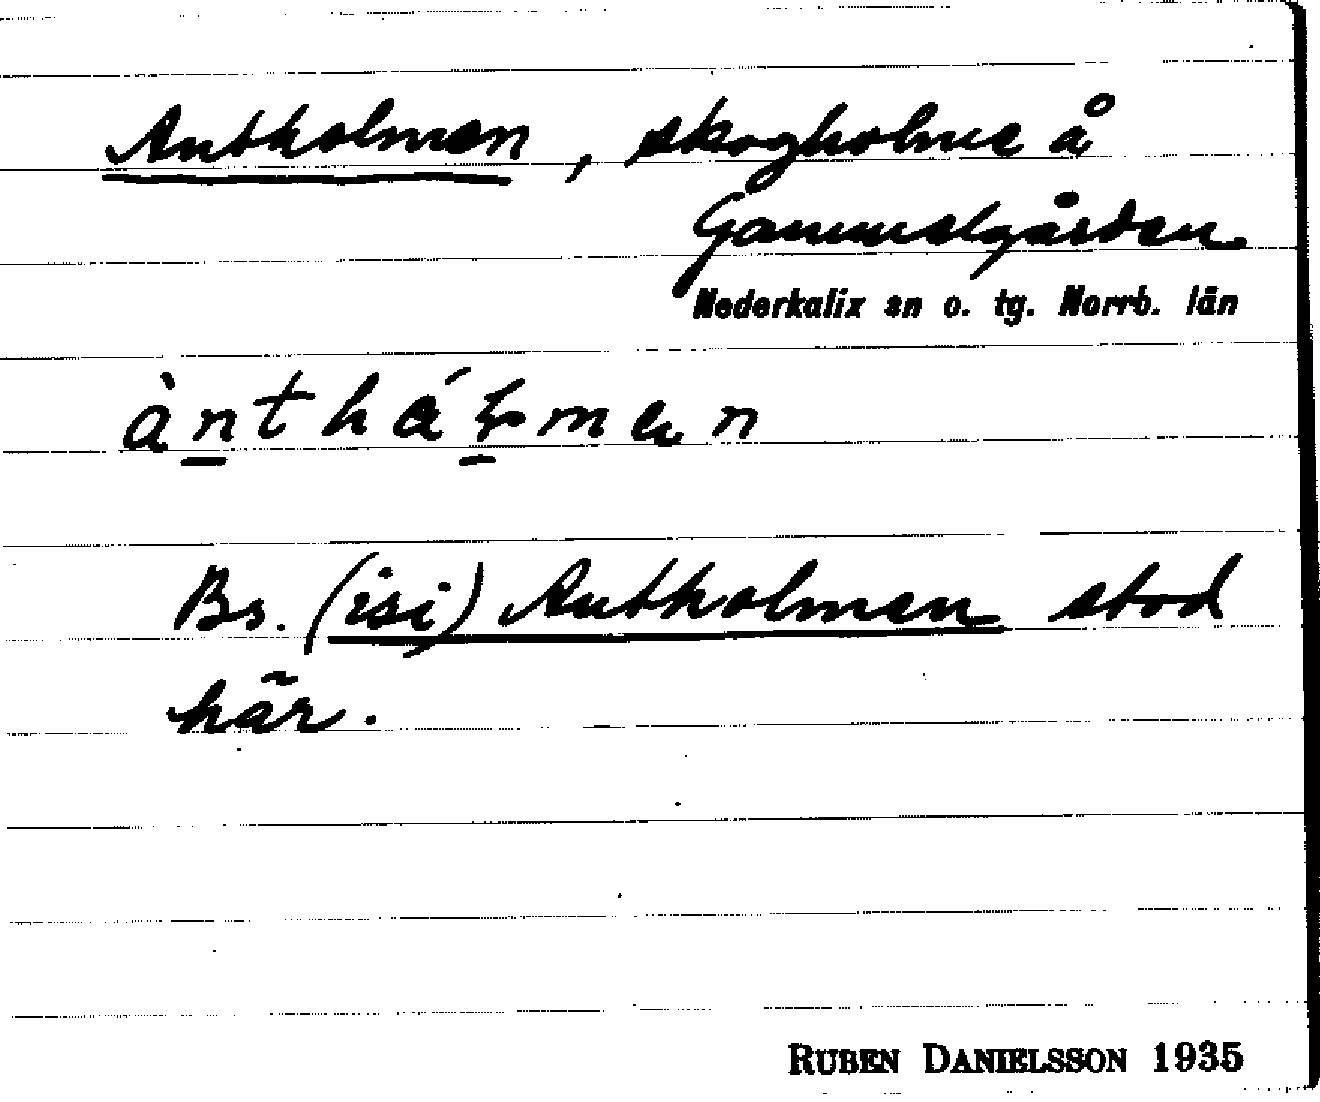 Antholmen, skogholme å
Gammelgården.
Nederkalix sn o. tg. Norrb. län
Bs. (isi) Antholmen stod
här.
RUBEN DANIELSSON 1935